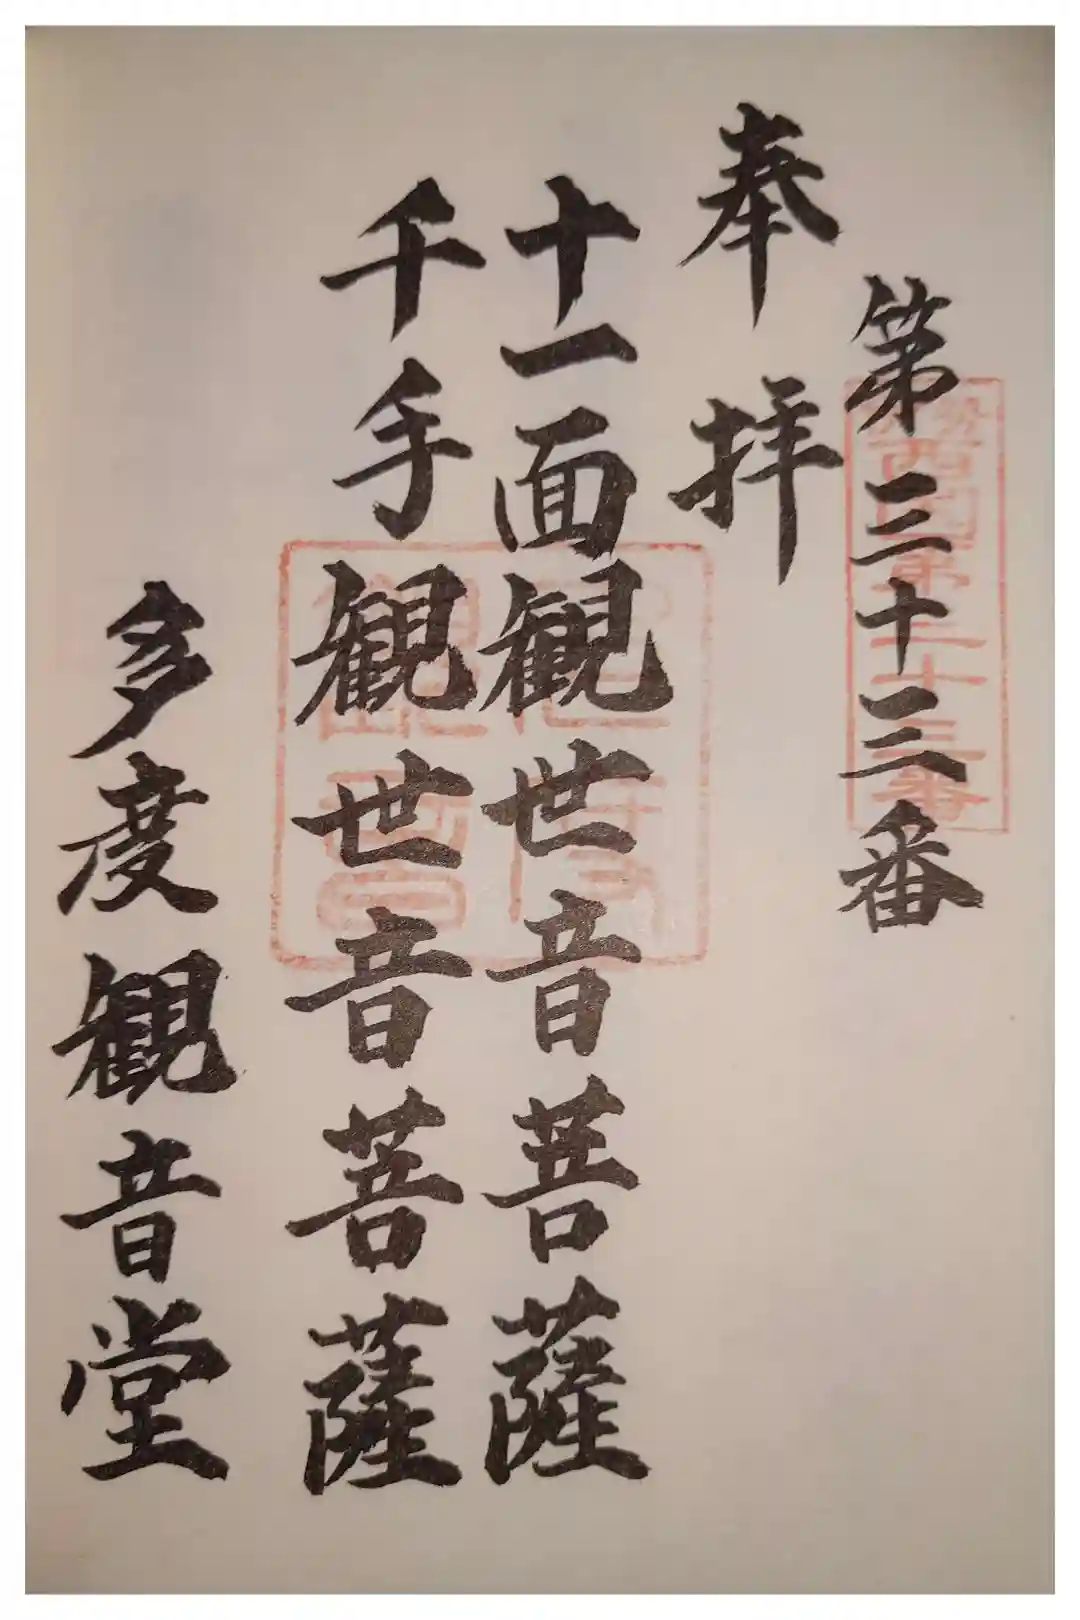 第三十三番
伊勢西国第三十三番
奉拝
十一面観世音菩薩
千手観世音菩薩
多度観音堂